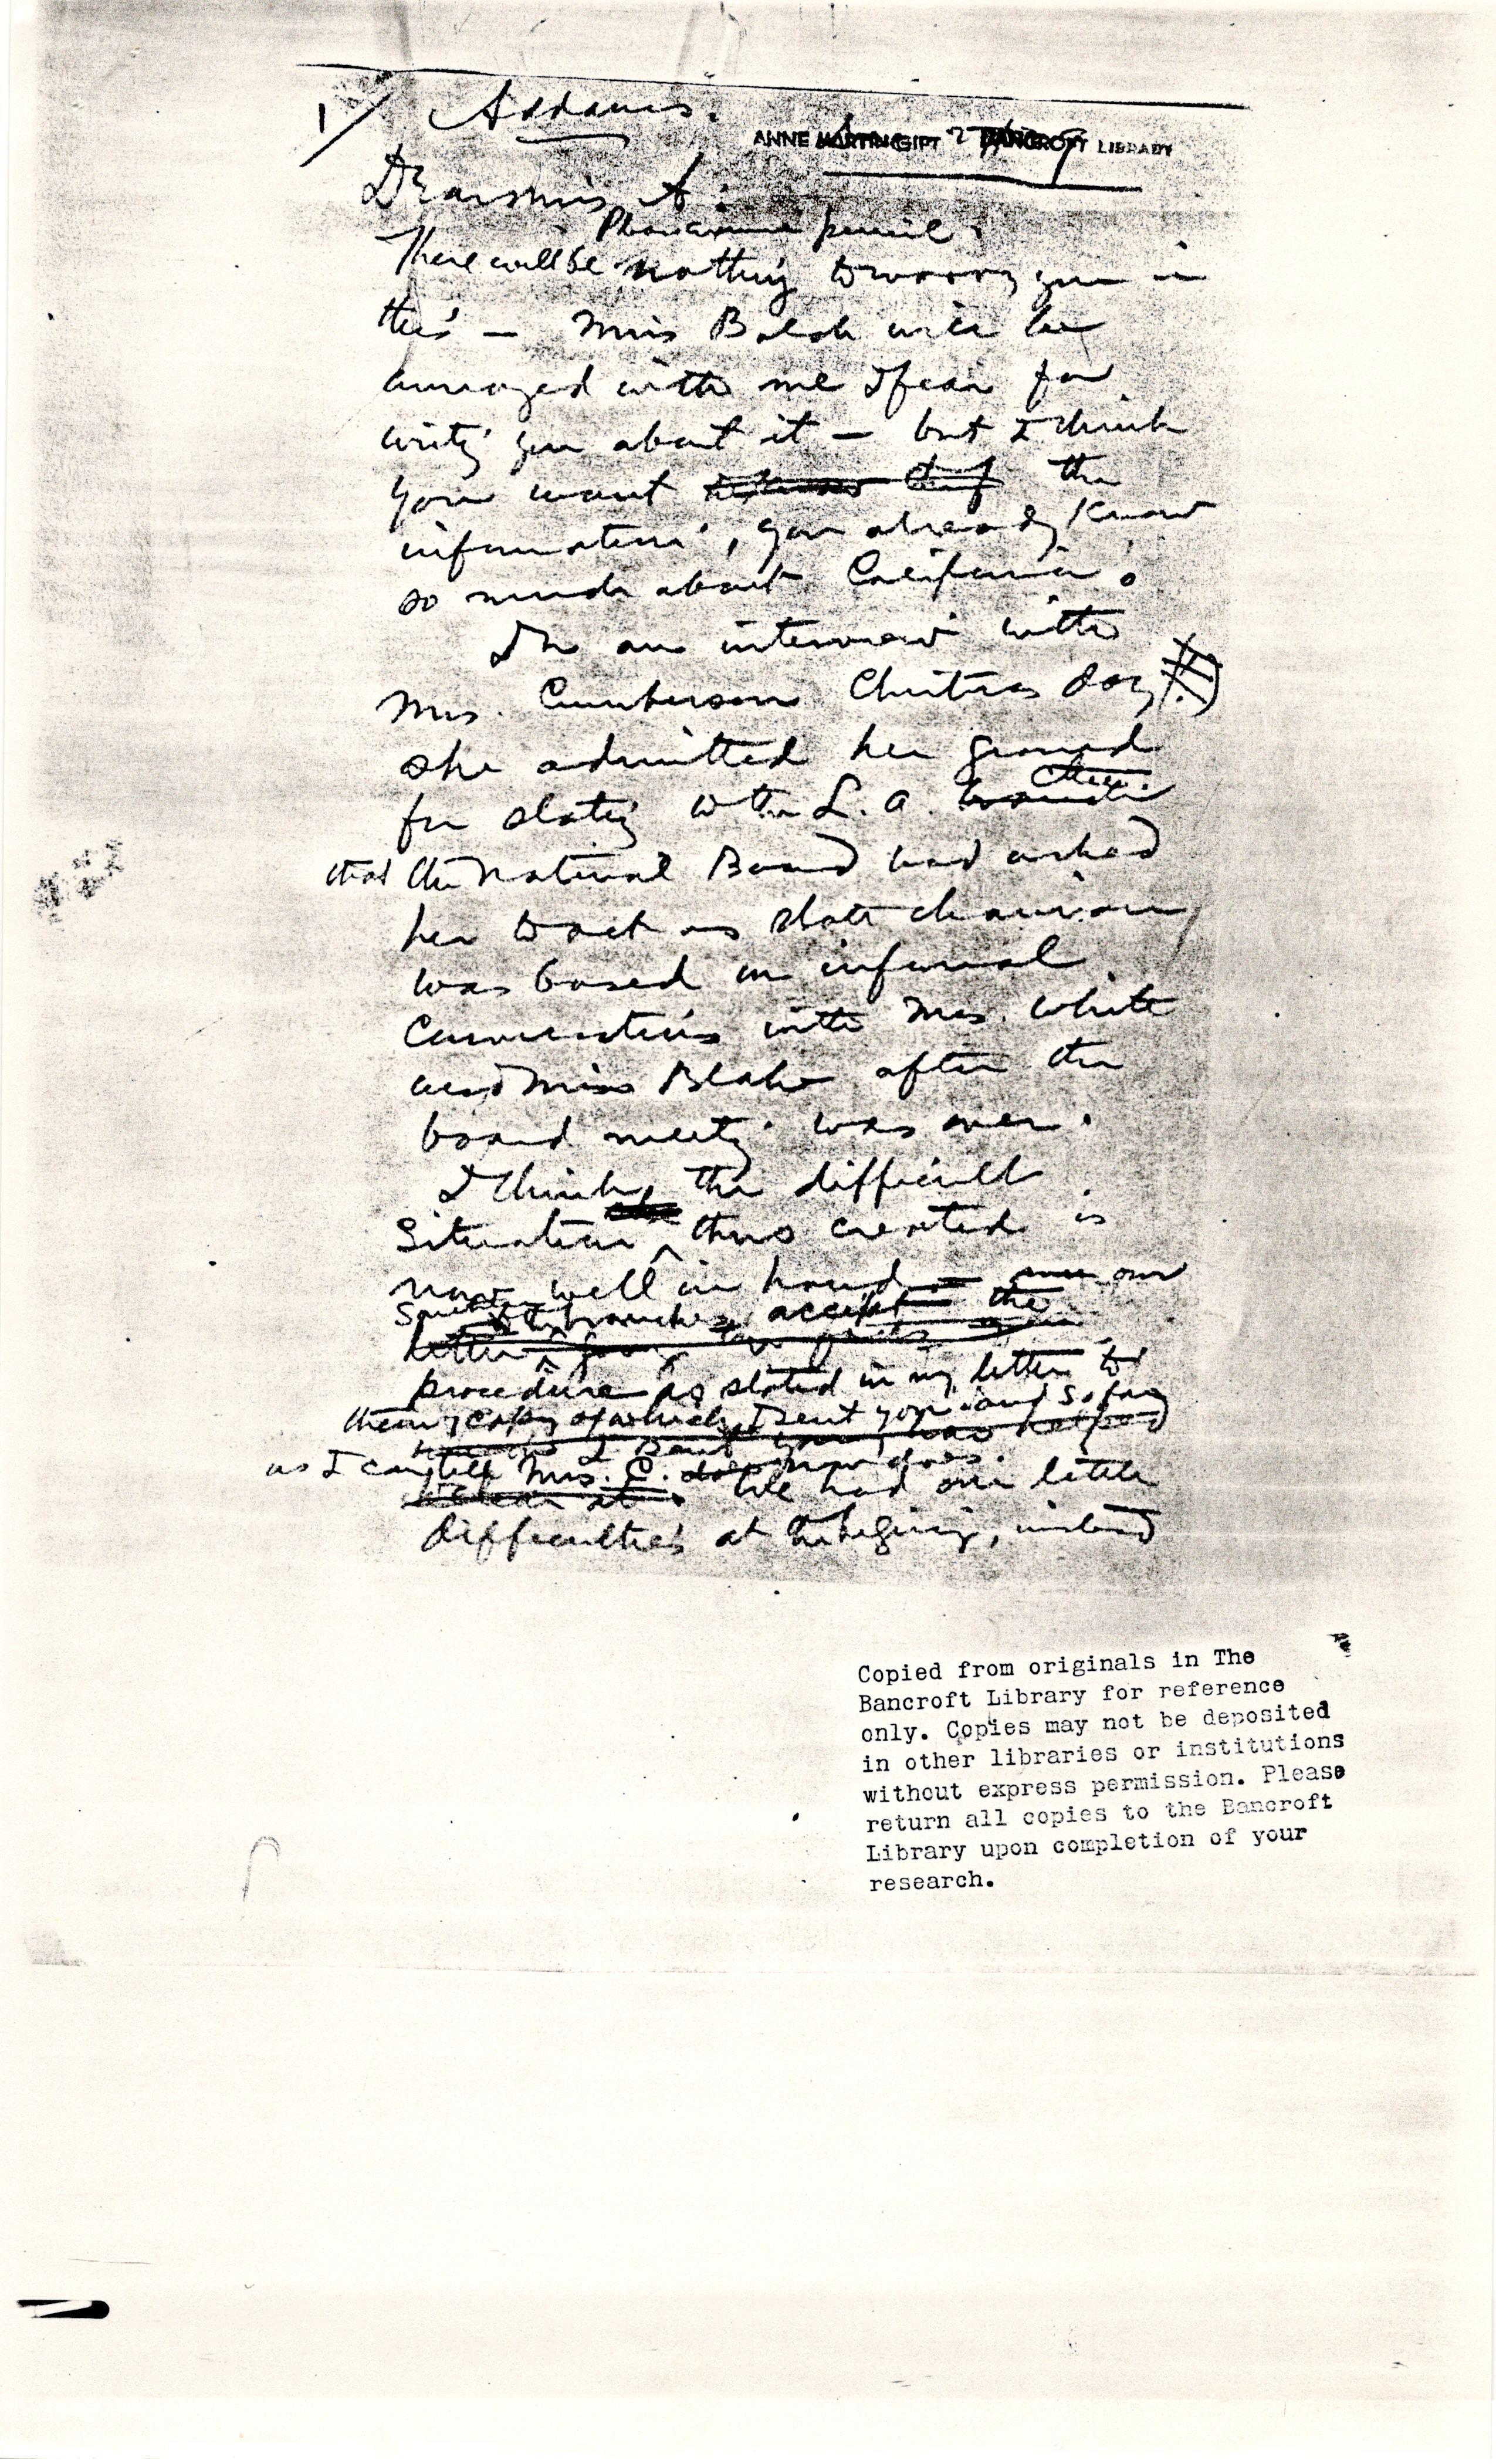 1/ Addams.
ANNE MARTIN GIFT BANCROFT LIBRARY
Dear Miss A:
Please excuse pencil.
There will be nothing to worry you in
this — Miss Balch will be
annoyed with me I fear for
writg you about it — but I think
you want the
information, you already know
so much about California.
In an interview with
Mrs. Cumberson Christmas day
she admitted her ground
for statig to the L.A.
that the National Board had asked
her to act as state chairman,
was based on informal
conversations with Mrs. White
and Miss Blake after the
board meetg was over.
I think, the difficult
situation thus created is
now well in hand our
branches accept the
letter
procedure as stated in my letter to
them, copy of which I sent you and so far
as I can tell Mrs. C. now does.
We had our little
difficulties at the beging, instead
Copied from originals in The
Bancroft Library for reference
only. Copies may not be deposited
in other libraries or institutions
without express permission. Please
return all copies to the Bancroft
Library upon completion of your
research.